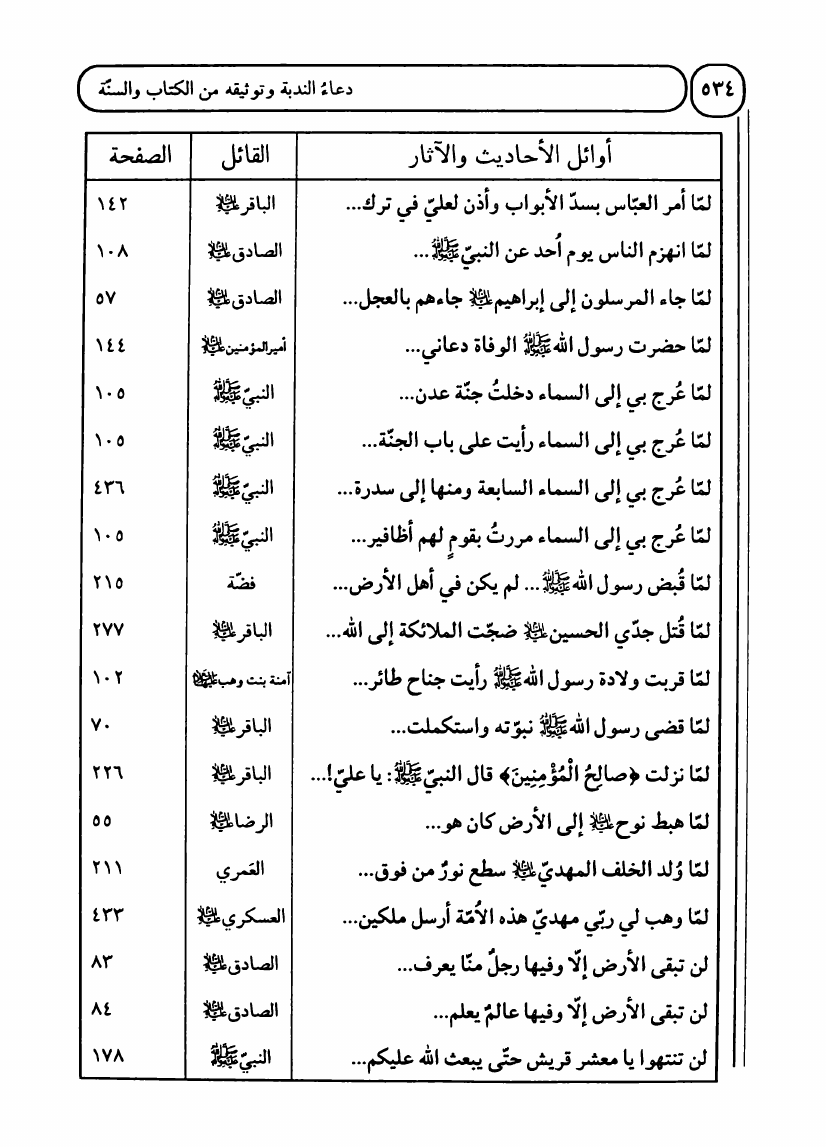 ٥٣٤ دعاءُ الندبة وتوثيقه من الكتاب والسنّة
أوائل الأحاديث والآثار القائل الصفحة
لمّا أمر العبّاس بسدّ الأبواب وأذن لعليّ في ترك... الباقر عليه السلام ١٤٢
لمّا انهزم الناس يوم أُحد عن النبيّ ﷺ... الصادق عليه السلام ١٠٨
لمّا جاء المرسلون إلى إبراهيم عليه السلام جاءهم بالعجل... الصادق عليه السلام ٥٧
لمّا حضرت رسول الله ﷺ الوفاة دعاني... أميرالمؤمنين عليه السلام ١٤٤
لمّا عُرج بي إلى السماء دخلتُ جنّة عدن... النبيّ ﷺ ١٠٥
لمّا عُرج بي إلى السماء رأيت على باب الجنّة... النبيّ ﷺ ١٠٥
لمّا عُرج بي إلى السماء السابعة ومنها إلى سدرة... النبيّ ﷺ ٤٣٦
لمّا عُرج بي إلى السماء مررتُ بقومٍ لهم أظافير... النبيّ ﷺ ١٠٥
لمّا قُبض رسول الله ﷺ... لم يكن في أهل الأرض... فضّة ٢١٥
لمّا قُتل جدّي الحسين عليه السلام ضجّت الملائكة إلى الله... الباقر عليه السلام ٢٧٧
لمّا قربت ولادة رسول الله ﷺ رأيت جناح طائر... آمنة بنت وهب عليها السلام ١٠٢
لمّا قضى رسول الله ﷺ نبوّته واستكملت... الباقر عليه السلام ٧٠
لمّا نزلت ﴿صالِحُ الْمُؤْمِنِينَ﴾ قال النبيّ ﷺ: يا عليّ!... الباقر عليه السلام ٢٢٦
لمّا هبط نوح عليه السلام إلى الأرض كان هو... الرضا عليه السلام ٥٥
لمّا وُلد الخلف المهديّ عليه السلام سطع نورٌ من فوق... العَمري ٢١١
لمّا وهب لي ربّي مهديّ هذه الأُمّة أرسل ملكين... العسكري عليه السلام ٤٣٣
لن تبقى الأرض إلّا وفيها رجلٌ منّا يعرف... الصادق عليه السلام ٨٣
لن تبقى الأرض إلّا وفيها عالمٌ يعلم... الصادق عليه السلام ٨٤
لن تنتهوا يا معشر قريش حتّى يبعث الله عليكم... النبيّ ﷺ ١٧٨